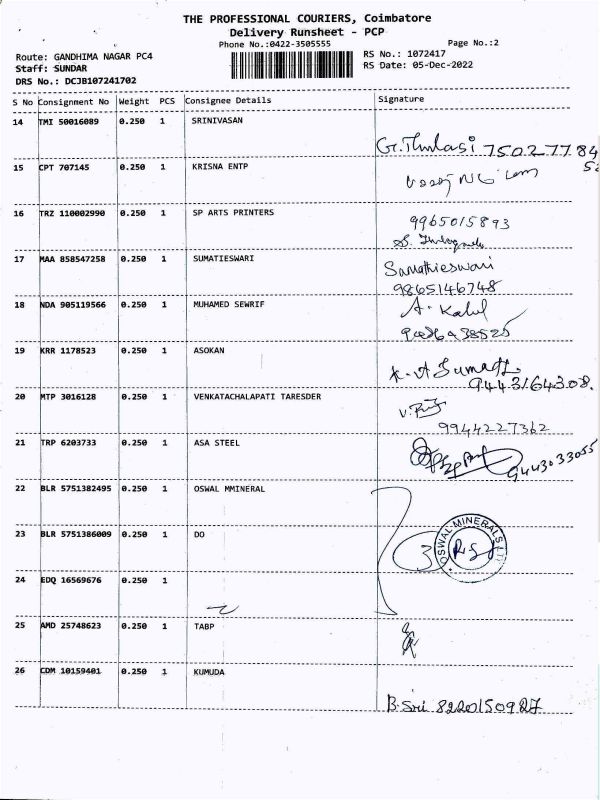 THE PROFESSIONAL COURIERS, Coimbatore
Delivery Runsheet - PCP
Phone No.:0422-3505555
Page No.:2
Route: GANDHIMA NAGAR PC4
RS No.: 1072417
Staff: SUNDAR
RS Date: 05-Dec-2022
DRS No.: DCJB107241702
S No Consignment No Weight PCS Consignee Details Signature
14 TMI 50016089 0.250 1 SRINIVASAN
G. Thulasi 750277784
15 CPT 707145 0.250 1 KRISNA ENTP
16 TRZ 110002990 0.250 1 SP ARTS PRINTERS
9965015893
17 MAA 858547258 0.250 1 SUMATIESWARI
Sumathieswari
9865146748
18 NDA 905119566 0.250 1 MUHAMED SEWRIF
A. Kalul
19 KRR 1178523 0.250 1 ASOKAN
9443164308.
20 MTP 3016128 0.250 1 VENKATACHALAPATI TARESDER
9944227362
21 TRP 6203733 0.250 1 ASA STEEL
9443033055
22 BLR 5751382495 0.250 1 OSWAL MMINERAL
23 BLR 5751386009 0.250 1 DO
3 OSWAL MINERALS
24 EDQ 16569676 0.250 1
25 AMD 25748623 0.250 1 TABP
26 CDM 10159401 0.250 1 KUMUDA
B. Sri 8220150927